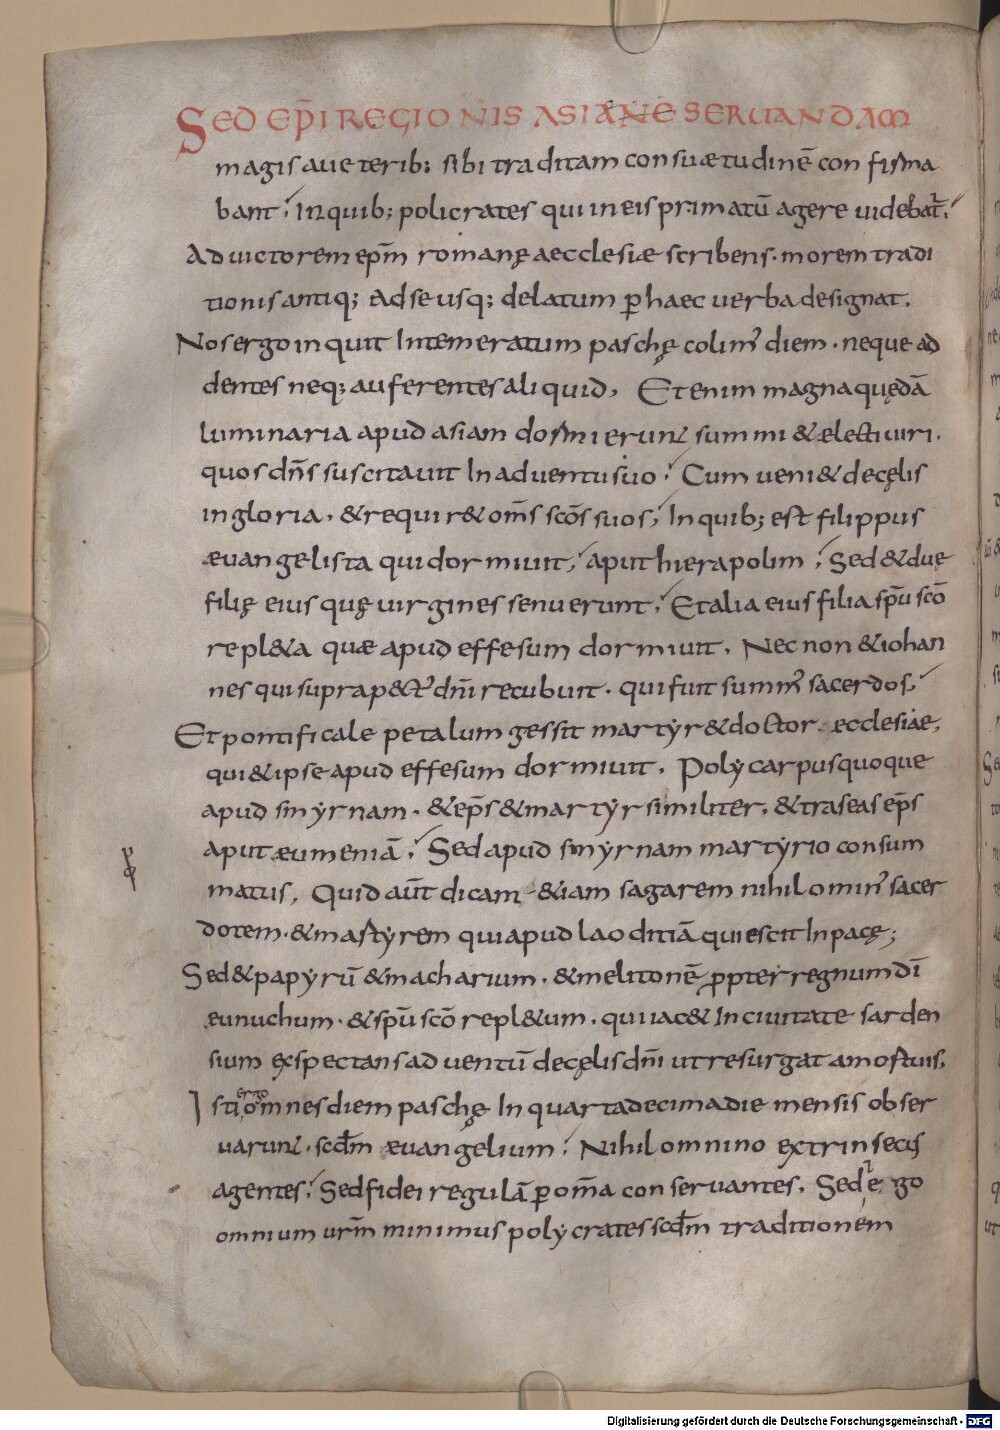 SED EP̄I REGIONIS ASIANE SERVANDAM
magis a ueterib; sibi traditam consuætudinē confirma
bant; In quib; policrates qui in eis primatū agere uidebat̄;
Ad uictorem ep̄m romanę aecclesiæ scribens. morem tradi
tionis antiq; ad se usq; delatum p̄ haec uerba designat.
Nos ergo inquit Intemeratum paschę colim᾽ diem. neque ad
dentes neq; auferentes aliquid. Etenim magna quędā
luminaria apud asiam dormierunt summi & ælecti uiri.
quos dn̄s suscitauit In aduentu suo; Cum ueni& de cęlis
in gloria. & requir& om̄s sc̄os suos; In quib; est filippus
æuangelista qui dormiuit; aput hierapolim; Sed & duę
filię eius quę uirgines senuerunt; Et alia eius filia sp̄u sc̄o
repl&a quæ apud effesum dormiuit. Nec non & iohan
nes qui supra pect᾽ dn̄i recubuit. qui fuit summ᾽ sacerdos;
Et pontificale petalum gessit martyr & doctor ecclesiae,
qui & ipse apud effesum dormiuit. Polycarpus quoque
apud smyrnam. & ep̄s & martyr similiter. & traseas ep̄s
aput æumeniā; Sed apud smyrnam martyrio consum
matus, Quid aūt dicam &iam sagarem nihilomin᾽ sacer
dotem. & martyrem qui apud laoditiā quiescit In pacę;
Sed & papyrū & macharium. & melitonē p̄pter regnum dī
eunuchum. & sp̄u sc̄o repl&um. qui iac& In ciuitate sarden
sium exspectans aduentū de cęlis dn̄i ut resurgat a mortuis.
Isti ergo omnes diem paschę In quartadecima die mensis obser
uarunt. scd̄m æuangelium; Nihil omnino extrinsecis
agentes; Sed fidei regulā p̄ om̄a conservantes. Sed & ego
omnium urm̄ minimus polycrates scd̄m traditionem
Digitalisierung gefördert durch die Deutsche Forschungsgemeinschaft - DFG